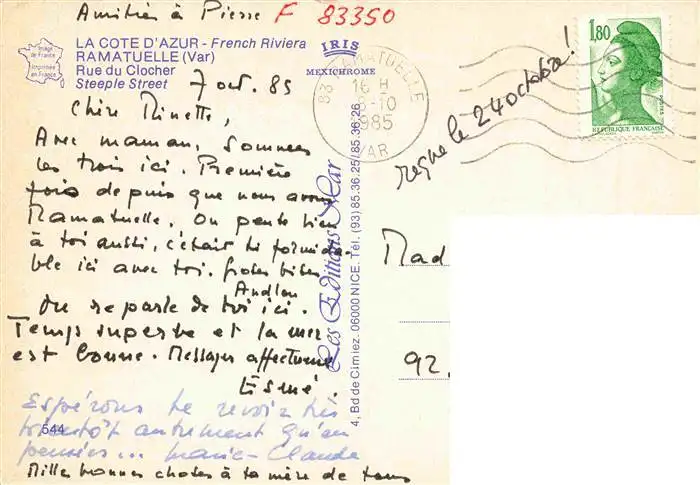 Amitiés à Pierre F 83350
Image de France
Imprimée en France
LA COTE D'AZUR - French Riviera
RAMATUELLE (Var)
Rue du Clocher
Steeple Street
IRIS
MEXICHROME
7 oct. 85
83 RAMATUELLE
16 H
-10
1985
VAR
1,80
REPUBLIQUE FRANÇAISE
reçue le 24 octobre!
Chère Minette,
Avec maman, sommes
les trois ici. Première
fois depuis que nous avons
Ramatuelle. On pense bien
à toi aussi, c'était si formida-
ble ici avec toi. Grosses bises
On reparle de toi ici.
Temps superbe et la mer
est bonne. Messages affectueux
Esmé.
Espérons te revoir très
bientôt autrement qu'en
pensées... Marie-Claude
544
Milles bonnes choses à ta mère de tous
Les Editions Mar
4, Bd de Cimiez. 06000 NICE. Tél. (93) 85.36.25/85.36.26
Mad
92.